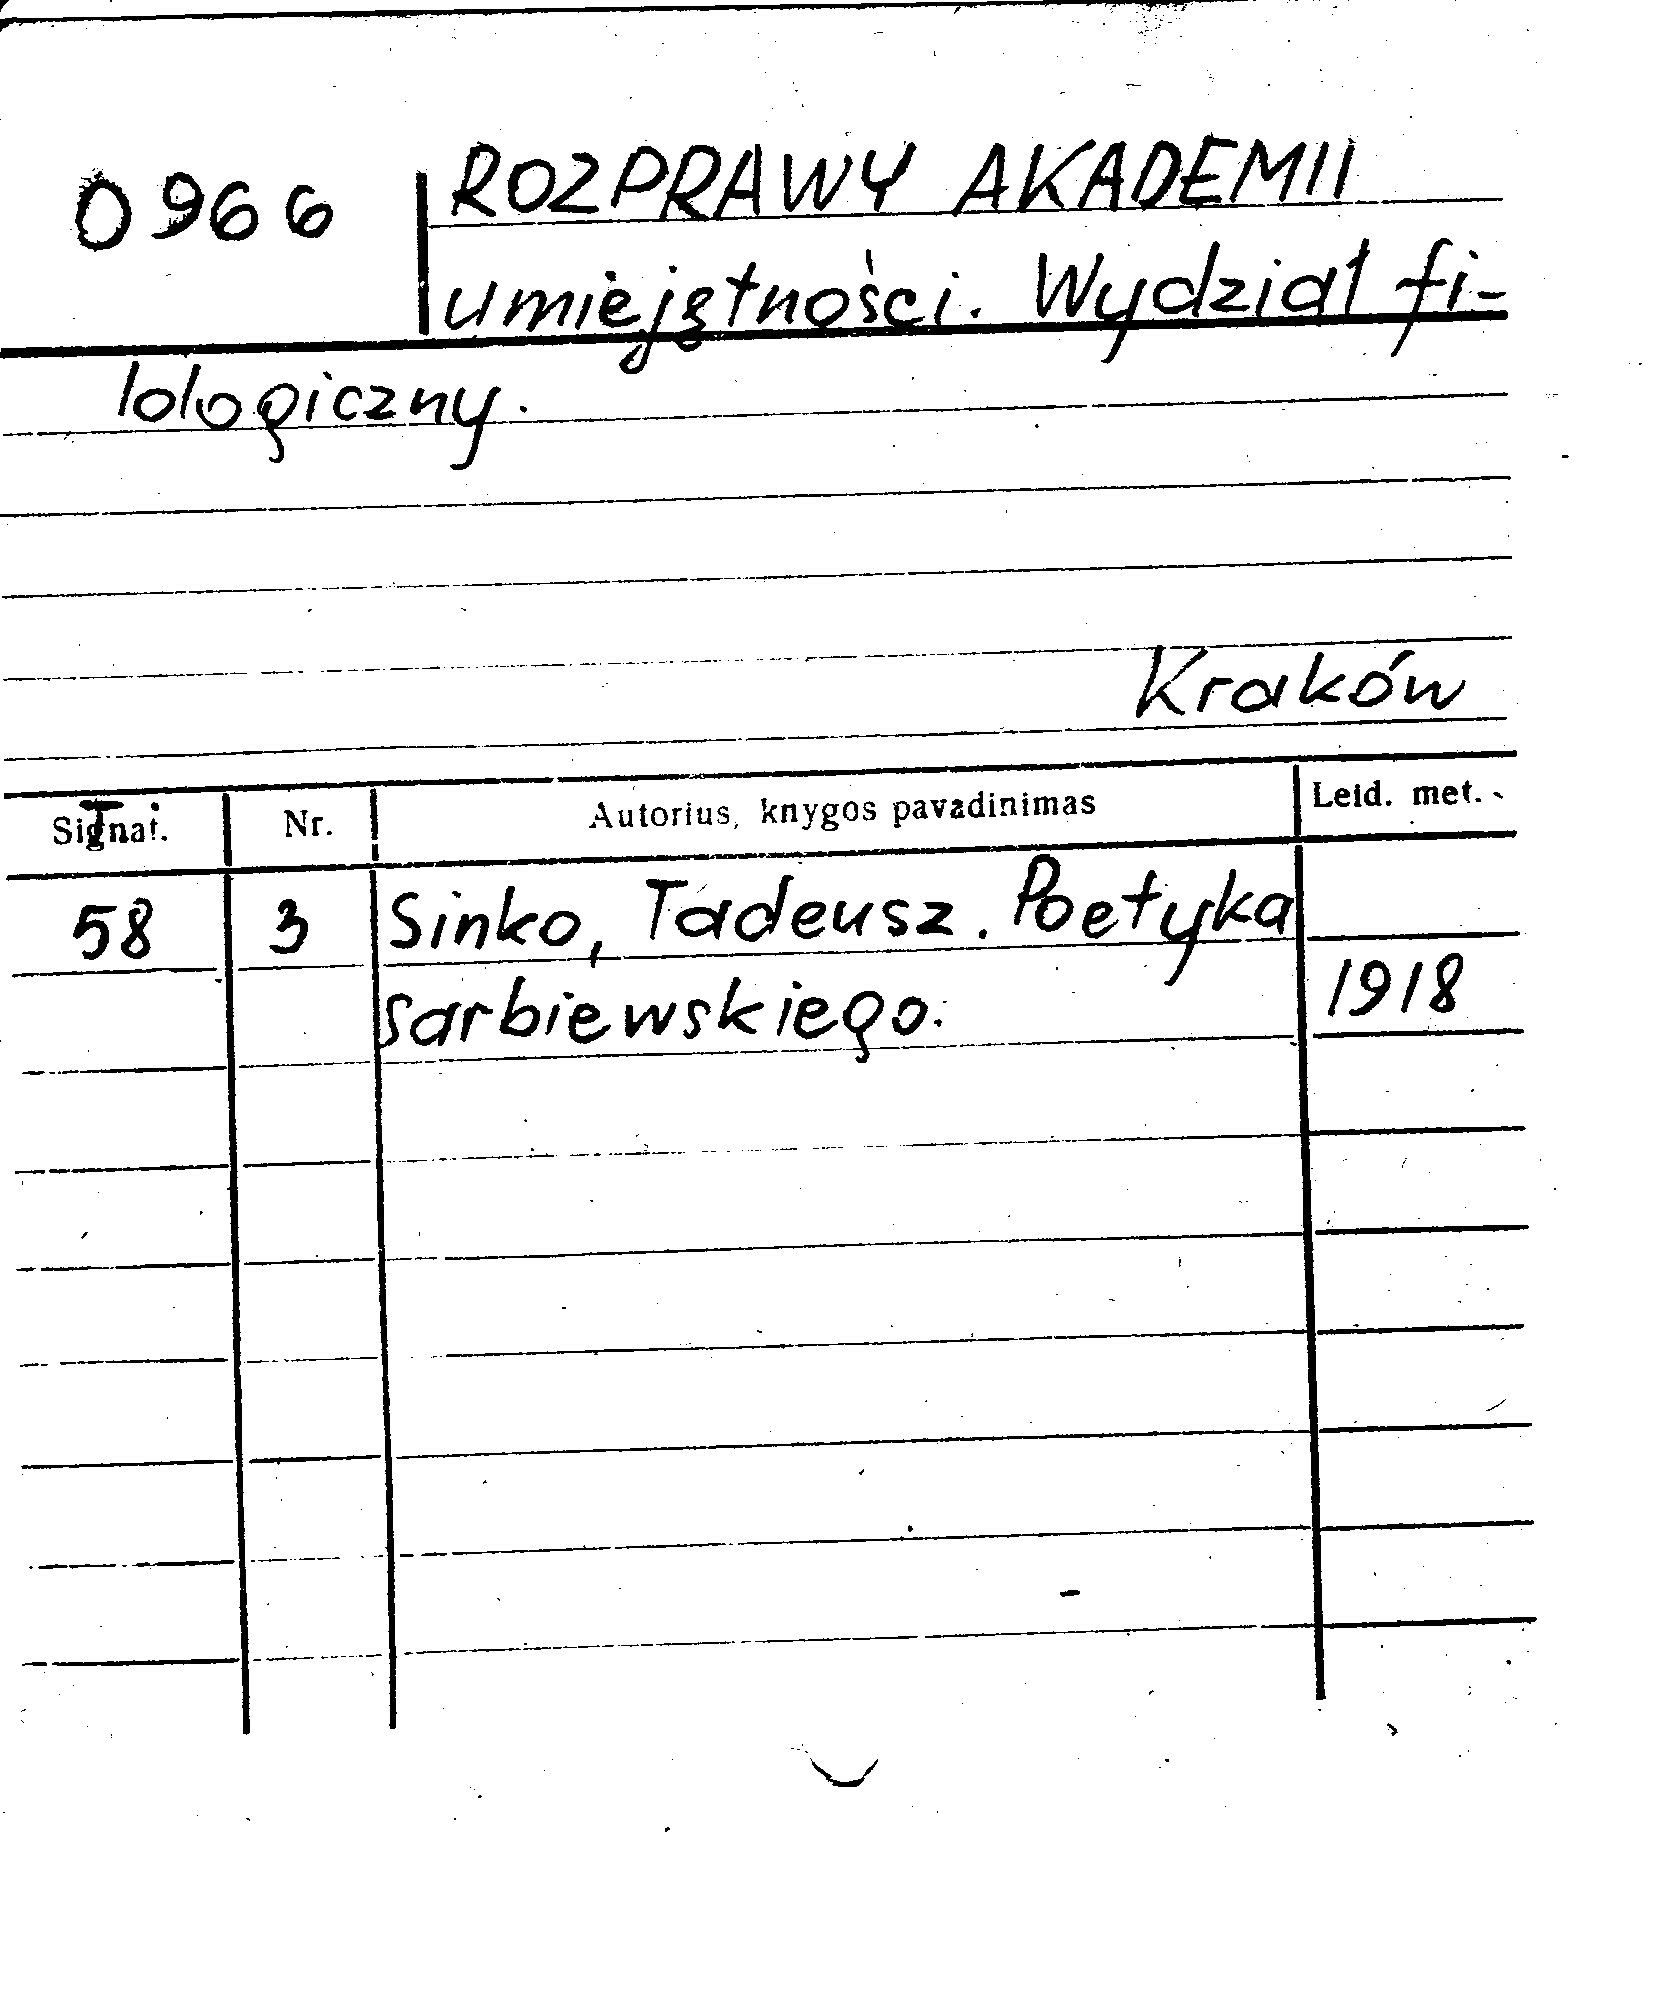 0966 ROZPRAWY AKADEMII
umiejętności. Wydział fi-
lologiczny.
Kraków
Signat. Nr. Autorius, knygos pavadinimas Leid. met.
T
58 3 Sinko, Tadeusz. Poetyka
sarbiewskiego. 1918